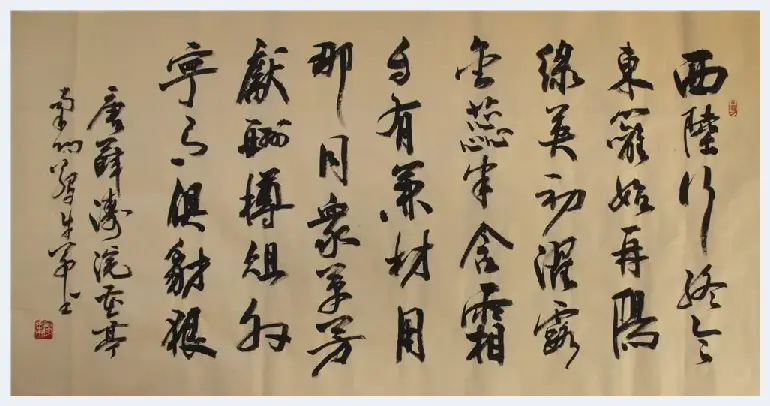 西陸行終令
東籬始再陽
緑英初濯露
金蕊半含霜
自有兼材用
那同衆草芳
獻酬樽俎外
寧有懼豺狼
唐薛濤浣花亭